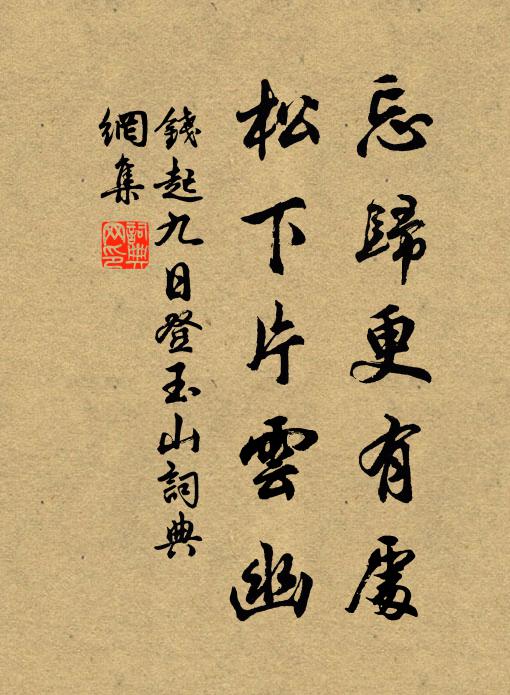 忘歸更有處
松下片雲幽
錢起九日登玉山詞典
網集
詞典網印